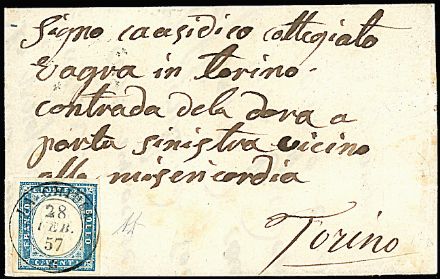 Signo causidico collegiato
vagra in torino
contrada dela dora a
porta sinistra vicino
alla misericordia
Torino
FRANCO BOLLO
28
FEB.
57
CENTI